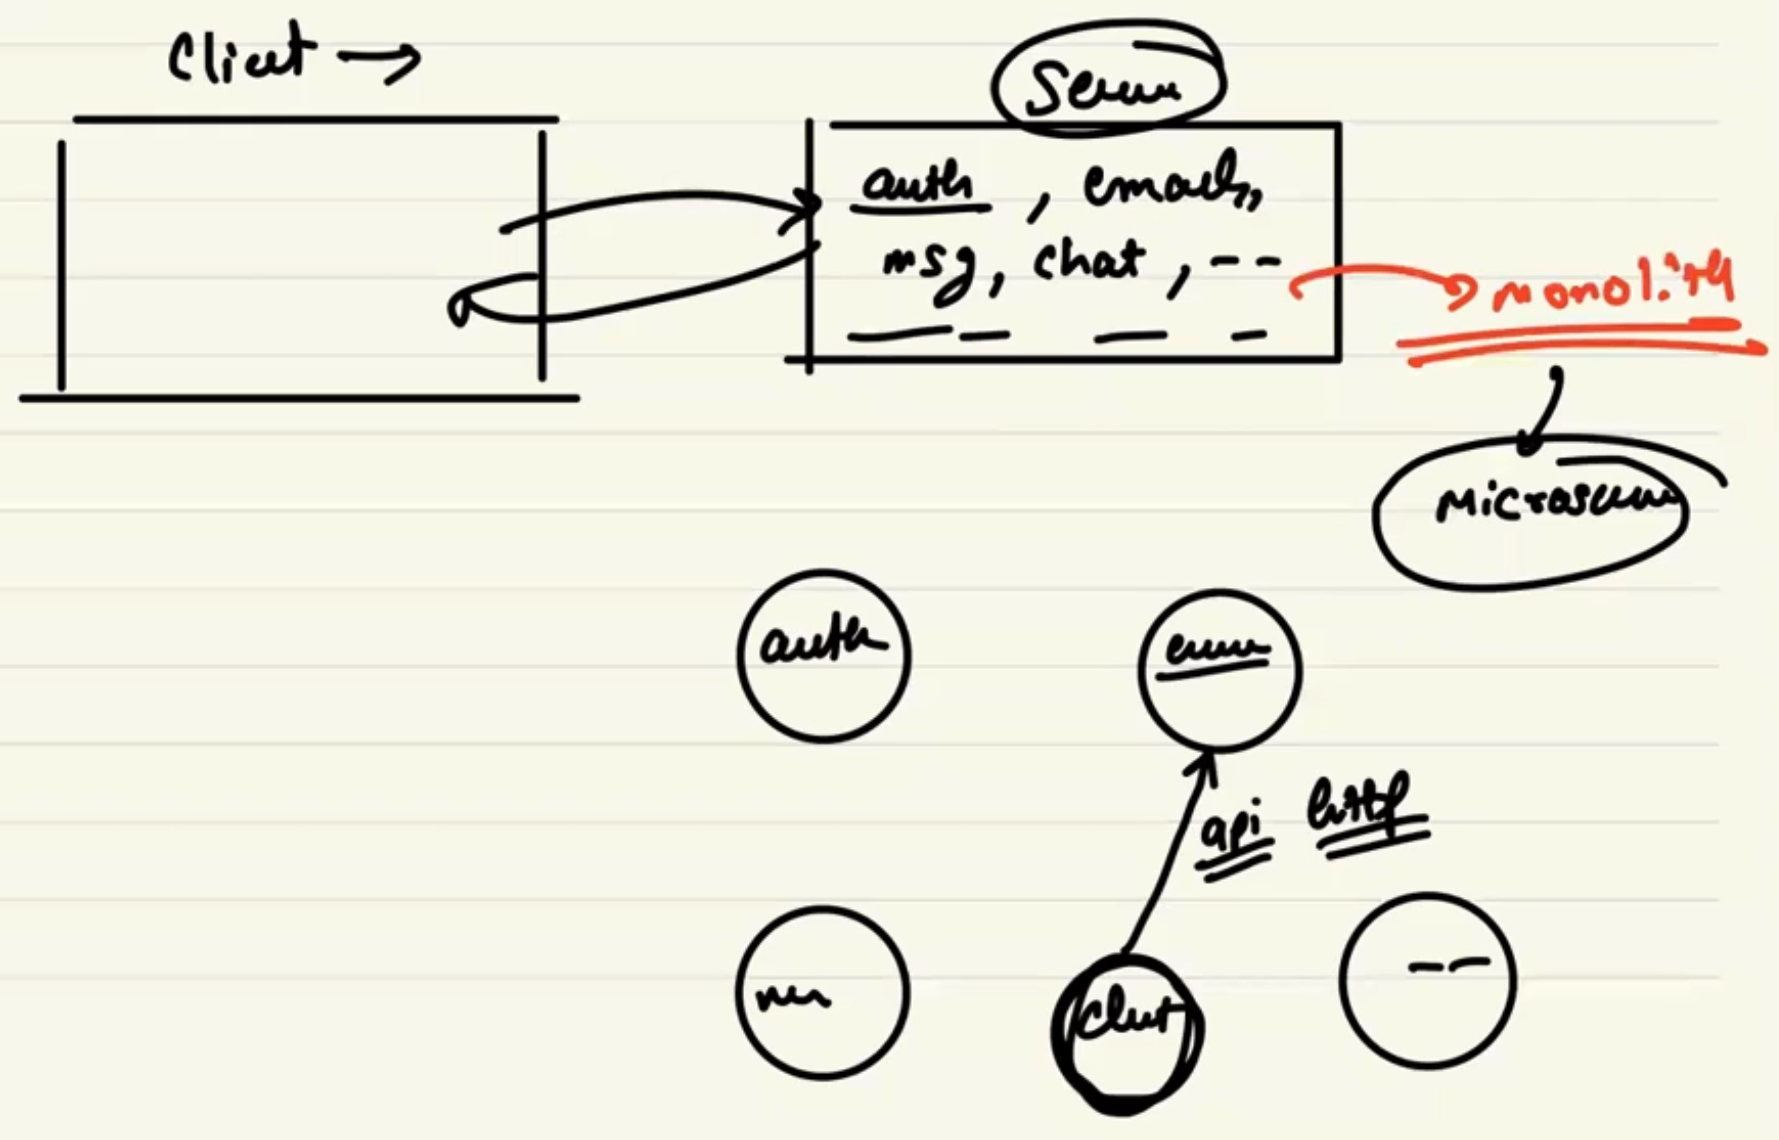 Client →
Server
auth, emails,
msg, chat, --
monolith
Microservice
auth
api http
--